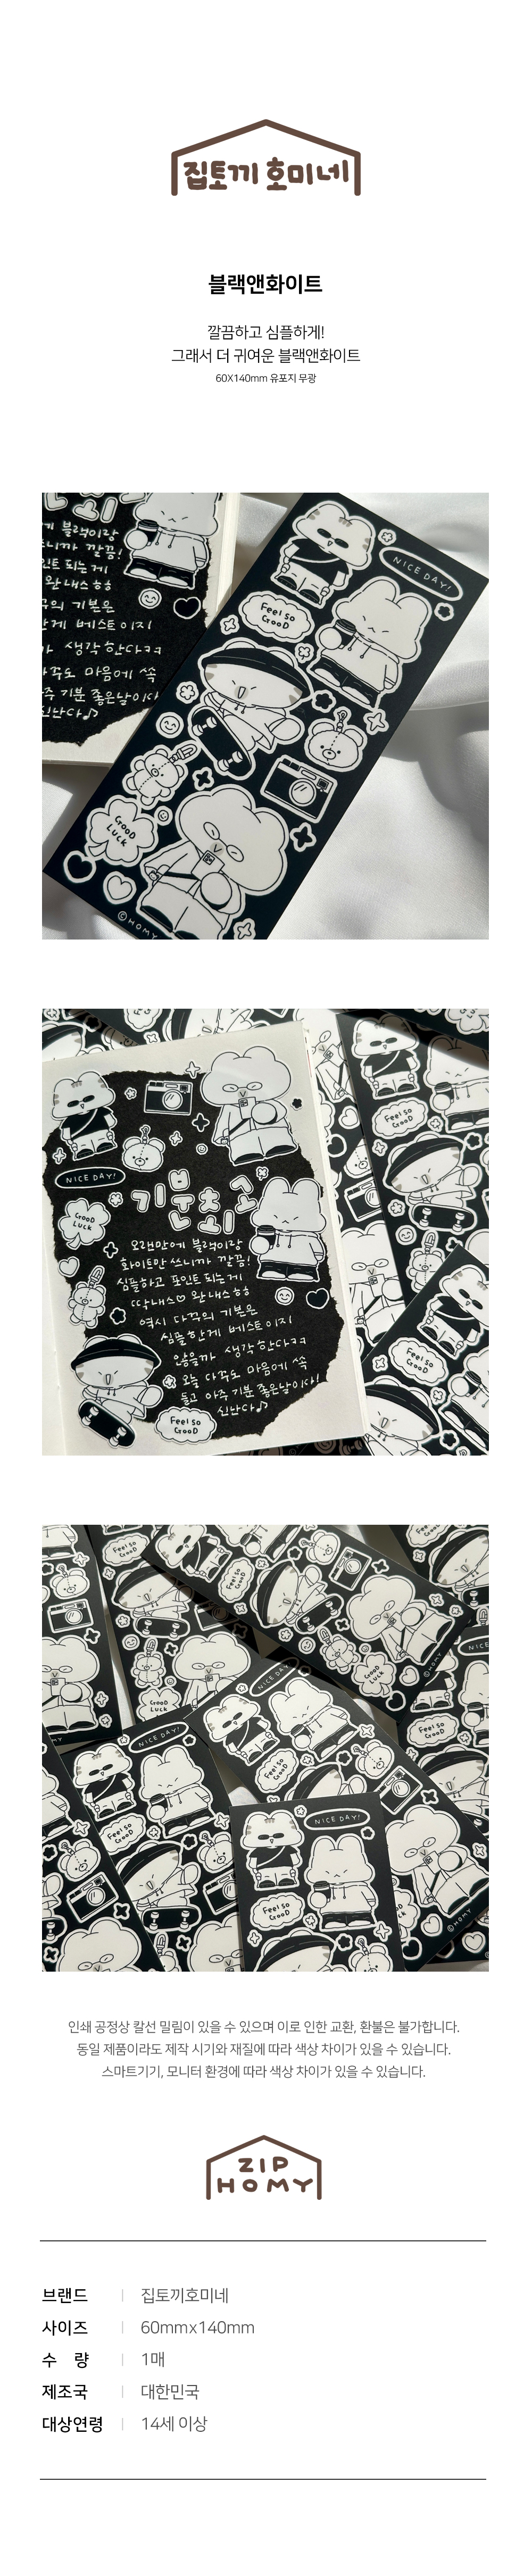 집토끼 호미네
블랙앤화이트
깔끔하고 심플하게!
그래서 더 귀여운 블랙앤화이트
60X140mm 유포지 무광
NICE DAY!
Feel so
GooD
GooD
LUCK
©HOMY
기분최고
오랜만에 블랙이랑
화이트만 쓰니까 깔끔!
심플하고 포인트 되는게
땅내스♡ 완내스ㅎㅎ
역시 다꾸의 기본은
심플한게 베스트이지
않을까 생각한다ㅋㅋ
오늘 다꾸도 마음에 쏙
들고 아주 기분 좋은날이다!
신난다♪
NICE DAY!
GooD
LUCK
Feel so
GooD
Feel so
GooD
Feel so
GooD
NICE DAY!
Feel so
GooD
NICE DAY!
Feel so
GooD
GooD
LUCK
©HOMY
인쇄 공정상 칼선 밀림이 있을 수 있으며 이로 인한 교환, 환불은 불가합니다.
동일 제품이라도 제작 시기와 재질에 따라 색상 차이가 있을 수 있습니다.
스마트기기, 모니터 환경에 따라 색상 차이가 있을 수 있습니다.
ZIP
HOMY
브랜드 | 집토끼호미네
사이즈 | 60mmx140mm
수 량 | 1매
제조국 | 대한민국
대상연령 | 14세 이상